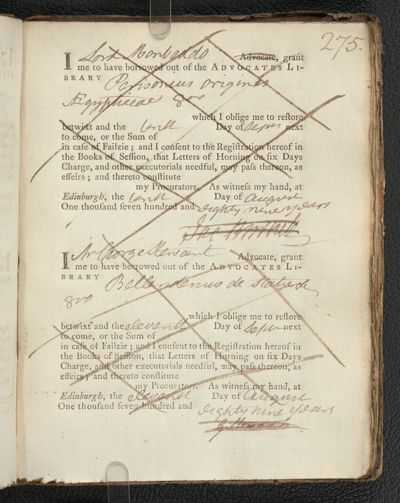 275.
I Lord Monboddo Advocate, grant
me to have borrowed out of the ADVOCATES LI-
BRARY Perizonius origines
Ægyptiacae 8vo
which I oblige me to restore
betwixt and the tenth Day of Sepr next
to come, or the Sum of
in case of Failzie; and I consent to the Registration hereof in
the Books of Session, that Letters of Horning on six Days
Charge, and other executorials needful, may pass thereon, as
effeirs; and thereto constitute
my Procurators. As witness my hand, at
Edinburgh, the tenth Day of August
One thousand seven hundred and eighty nine years
I Mr George Stewart Advocate, grant
me to have borrowed out of the ADVOCATES LI-
BRARY Bellendenus de Statu
8vo
which I oblige me to restore
betwixt and the eleventh Day of Sepr next
to come, or the Sum of
in case of Failzie; and I consent to the Registration hereof in
the Books of Session, that Letters of Horning on six Days
Charge, and other executorials needful, may pass thereon, as
effeirs; and thereto constitute
my Procurators. As witness my hand, at
Edinburgh, the eleventh Day of August
One thousand seven hundred and
eighty nine years